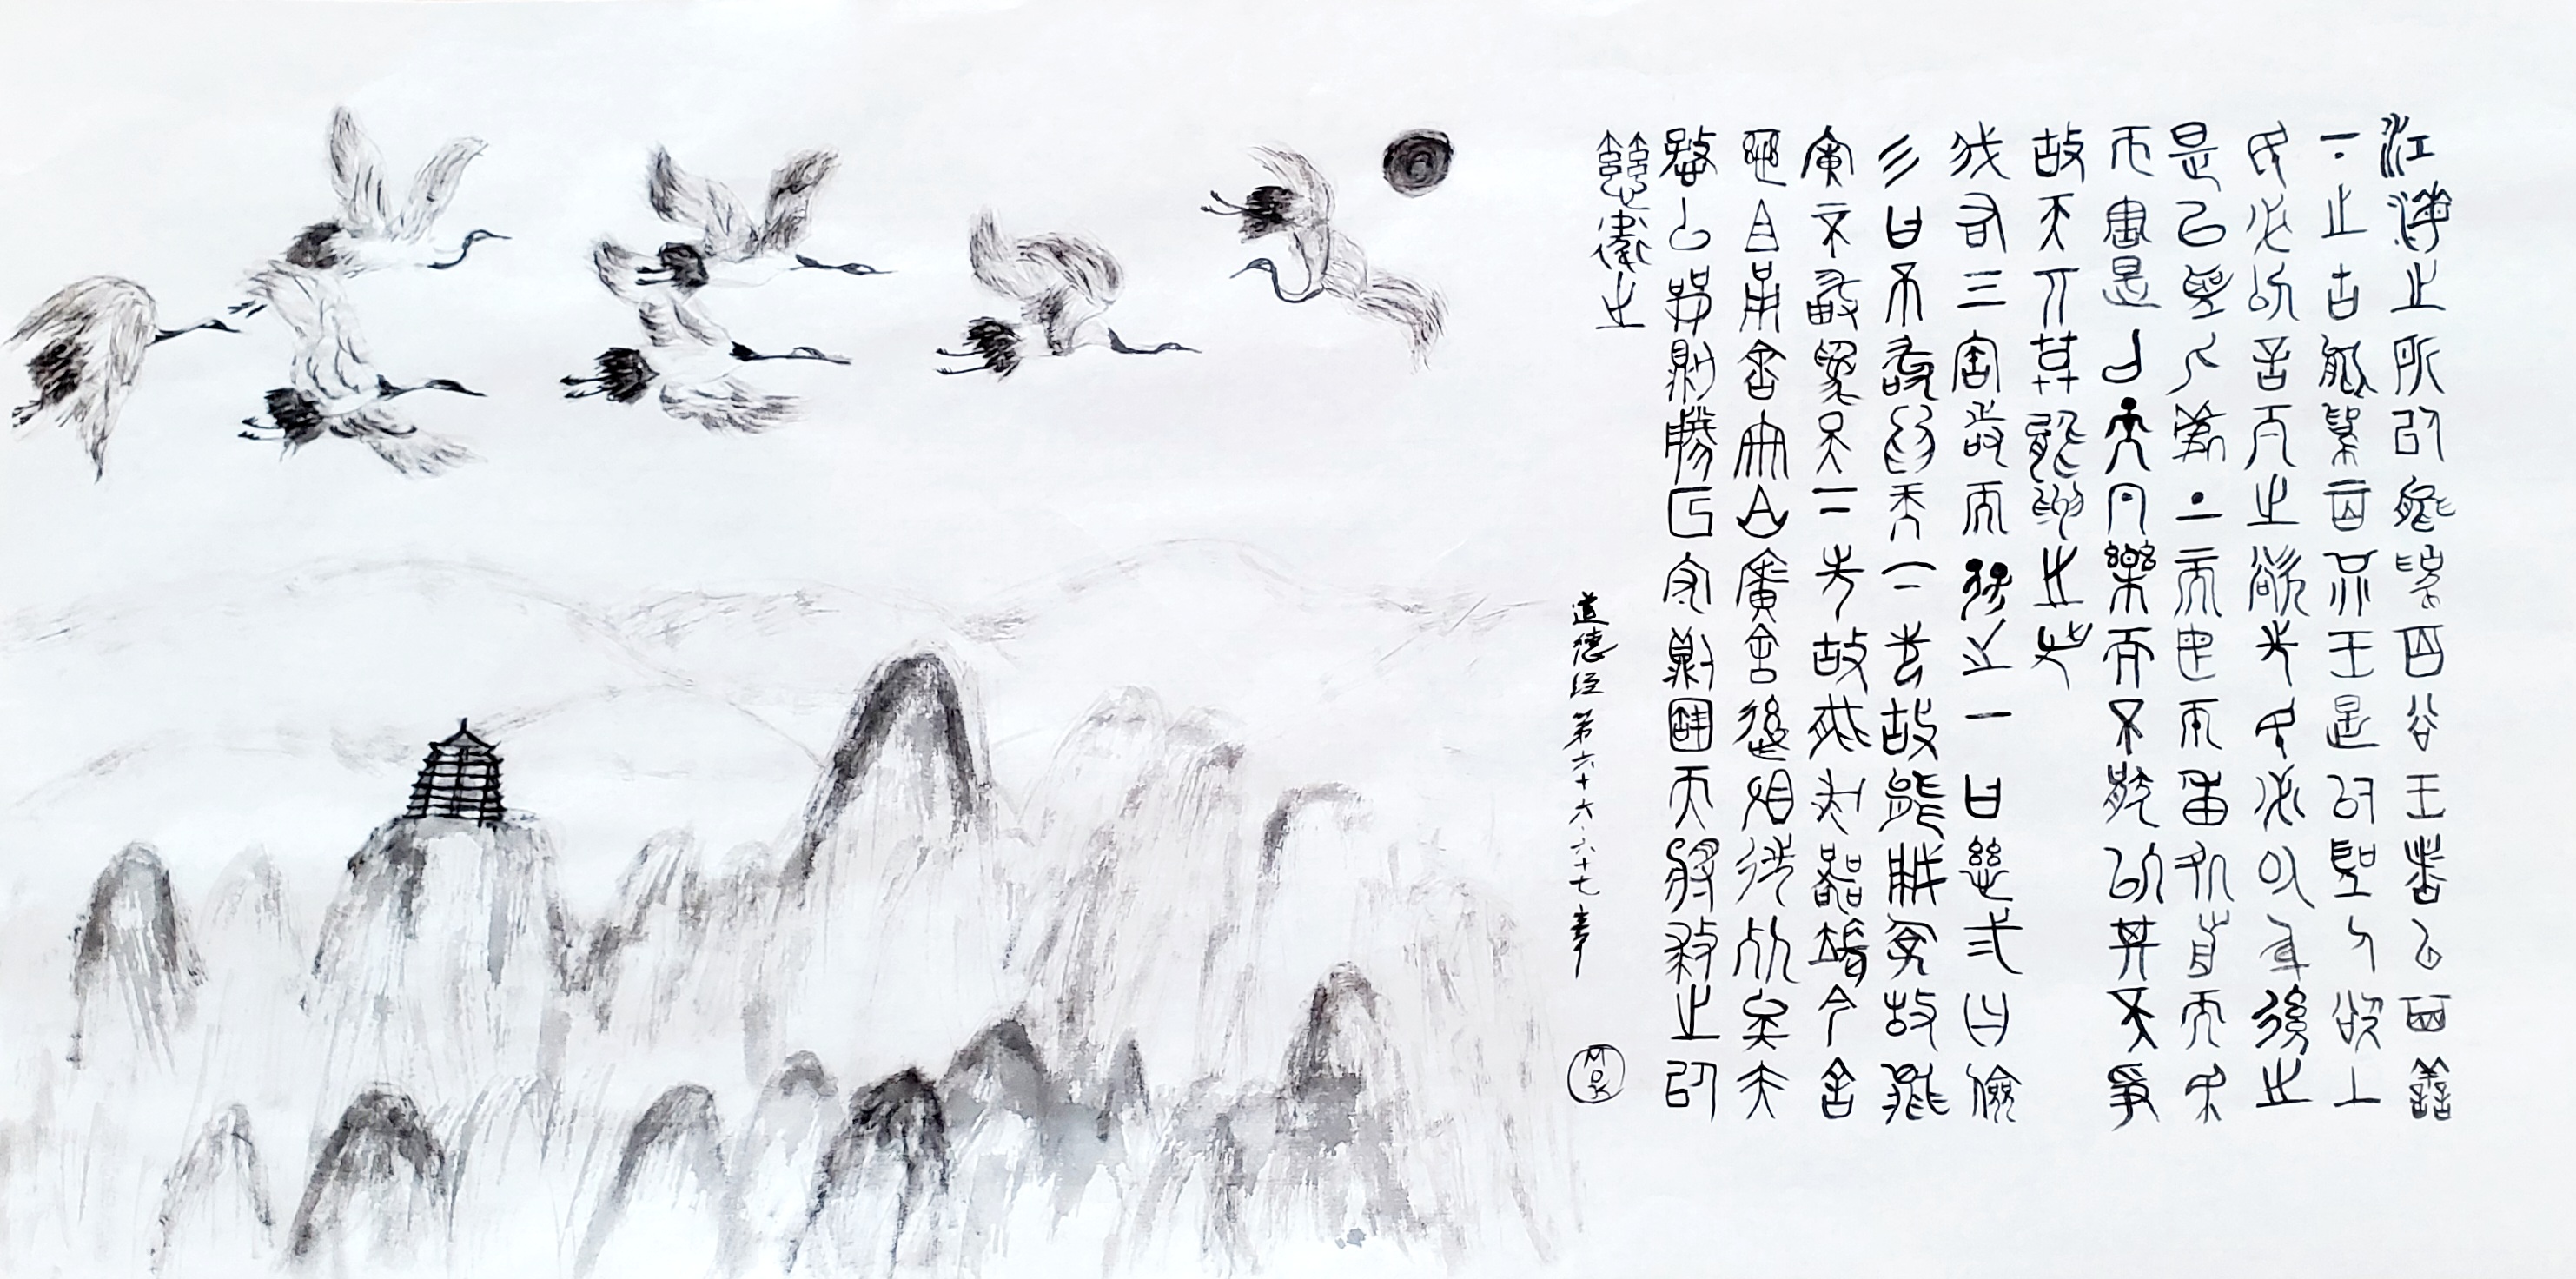 江海之所以能為百谷王者以其善
下之古能為百谷王是以聖人欲上
民必以言下之欲先民必以身後之
是以聖人處上而民不重處前而民
不害是以天下樂而不厭以其不爭
故天下莫能與之爭
我有三寶故而之一曰慈二曰儉
三曰不敢為天下先故能勇儉故能
廣不敢為天下先故成器長今舍
慈且勇舍儉且廣舍後且先死矣夫
慈以戰則勝以守則固天將救之以
慈衛之
道德经第六十六·六十七章